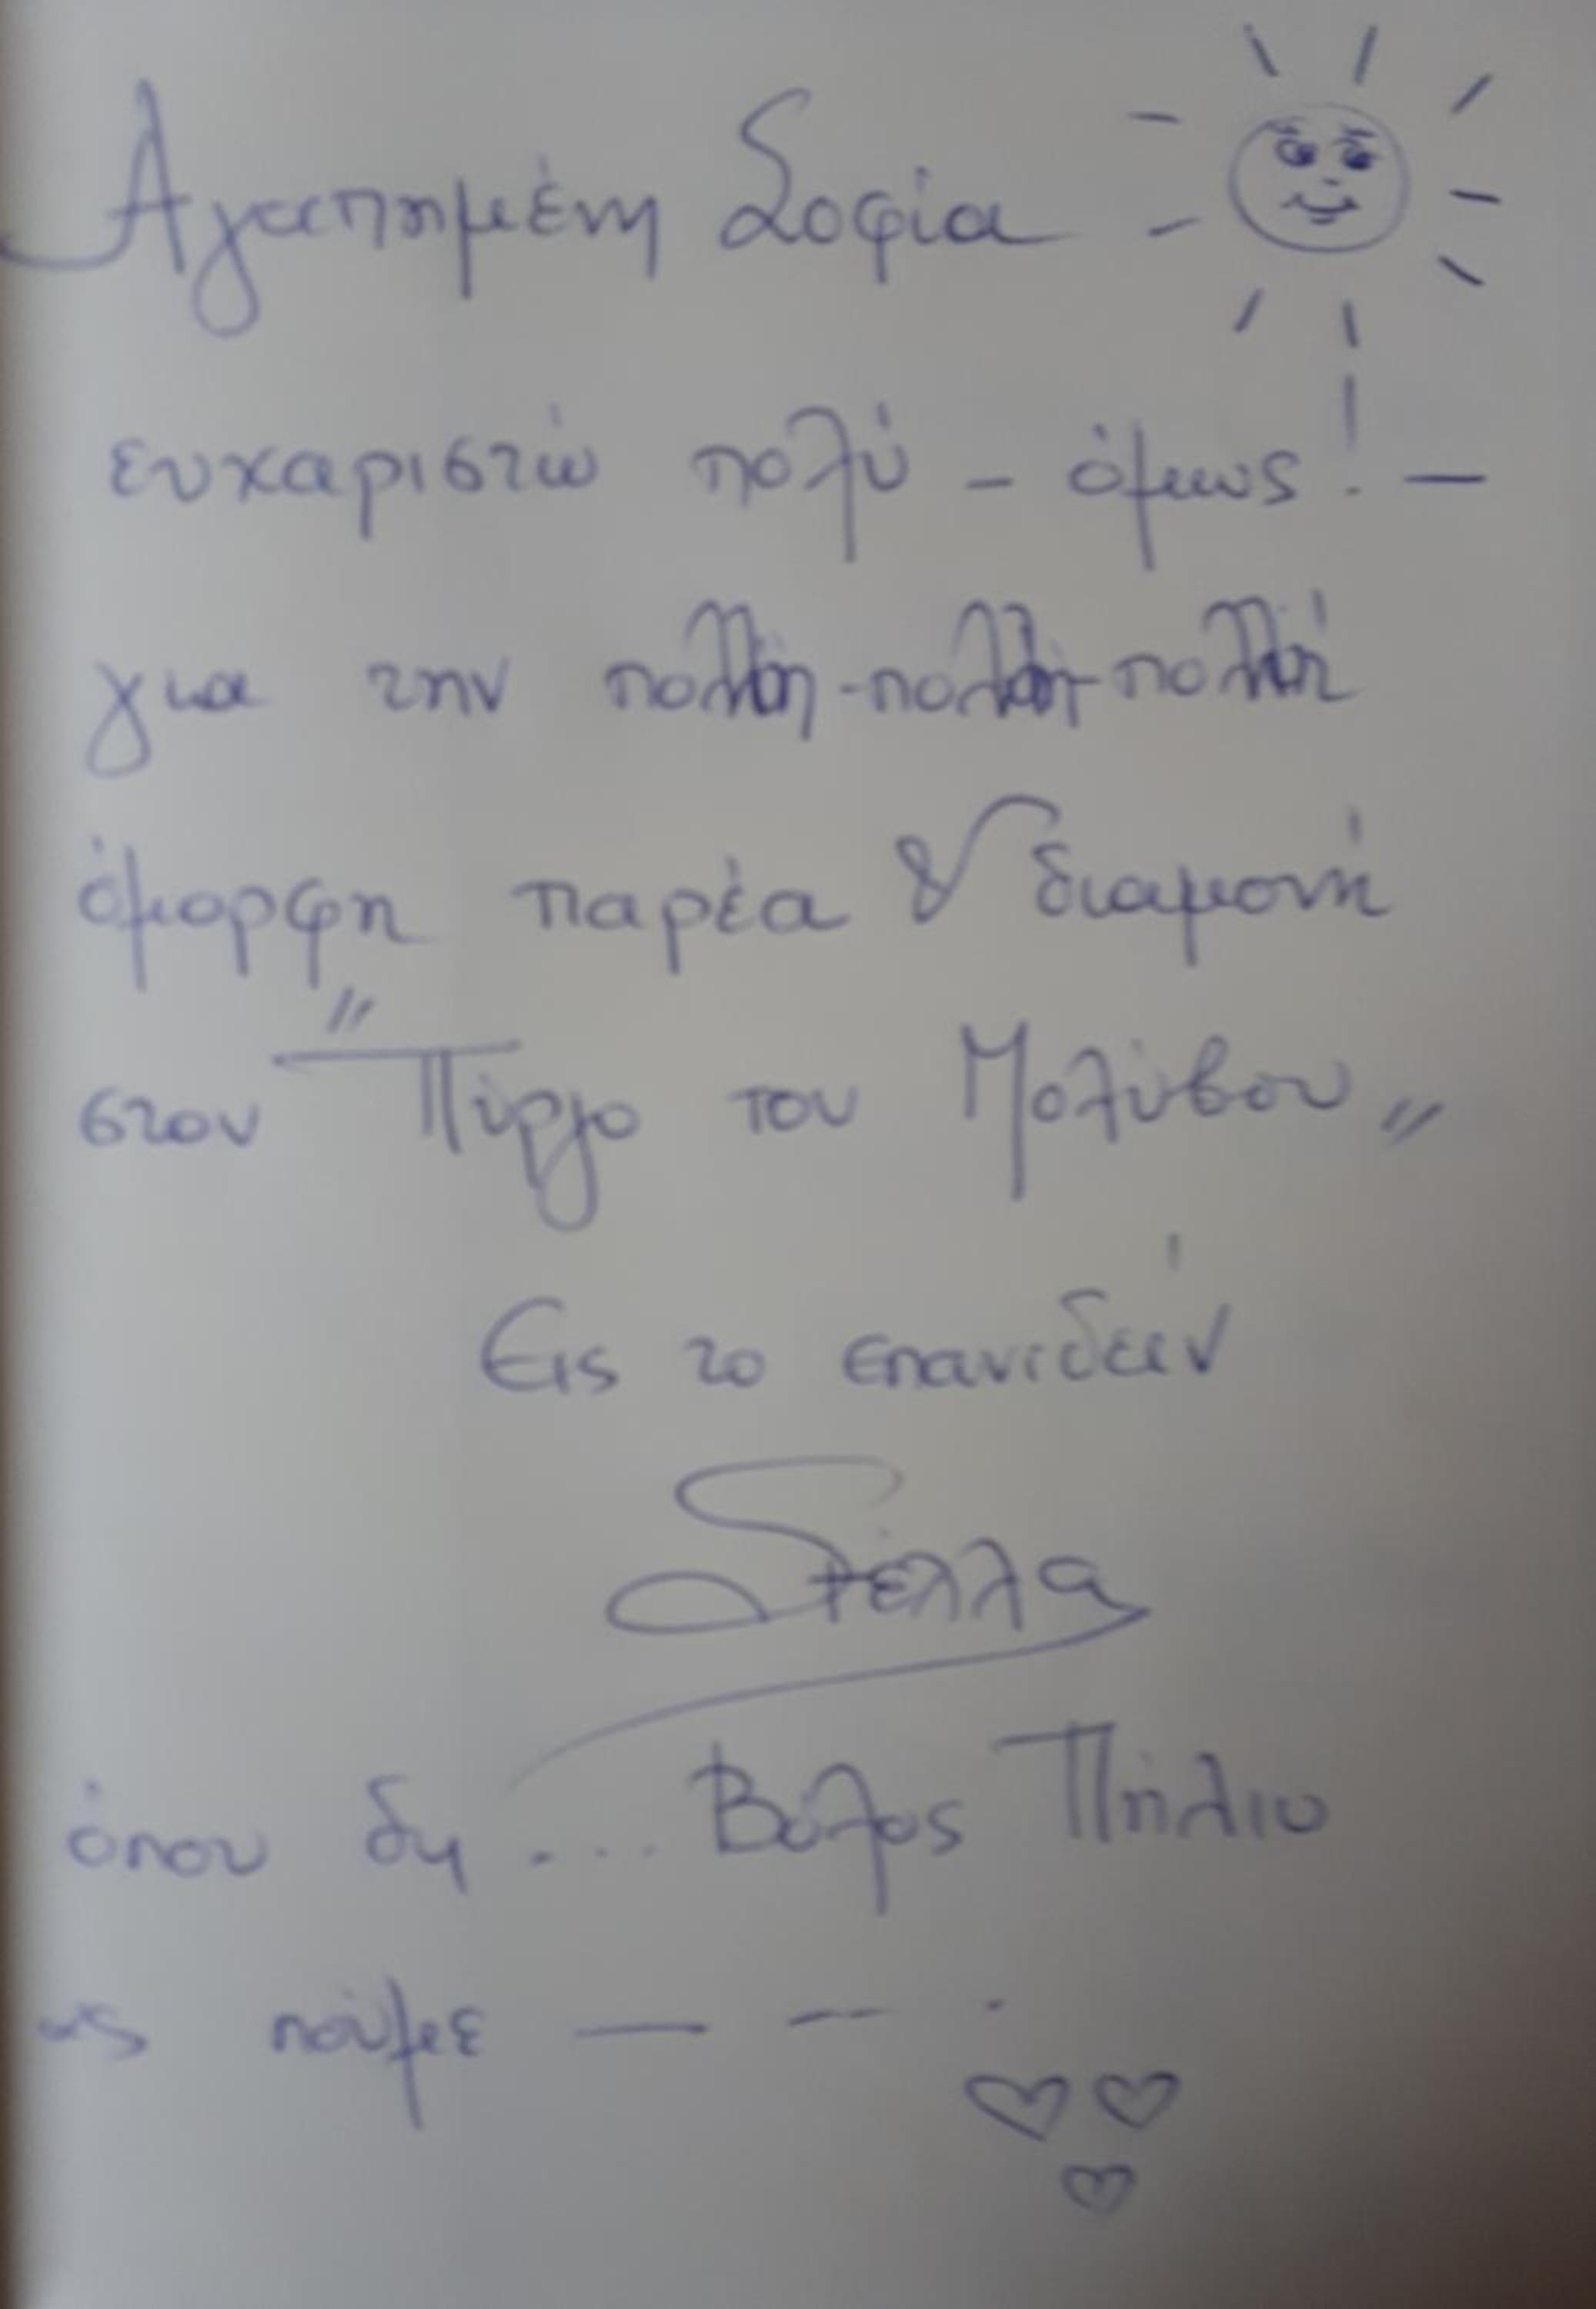 Αγαπημένη Σοφία
ευχαριστώ πολύ - όμως! -
για την πολλή-πολλή-πολλή
όμορφη παρέα & διαμονή
στον "Πύργο του Μολύβου"
Εις το επανιδείν
Στέλλα
όπου δη .... Βόλος Πήλιο
ας πούμε — — .